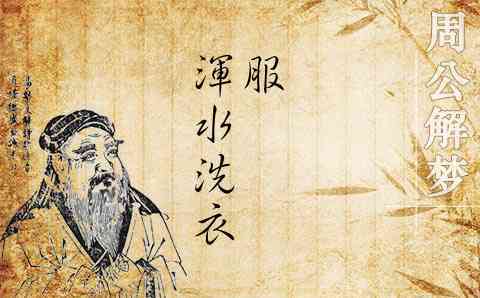 周公解梦
渾水洗衣
服